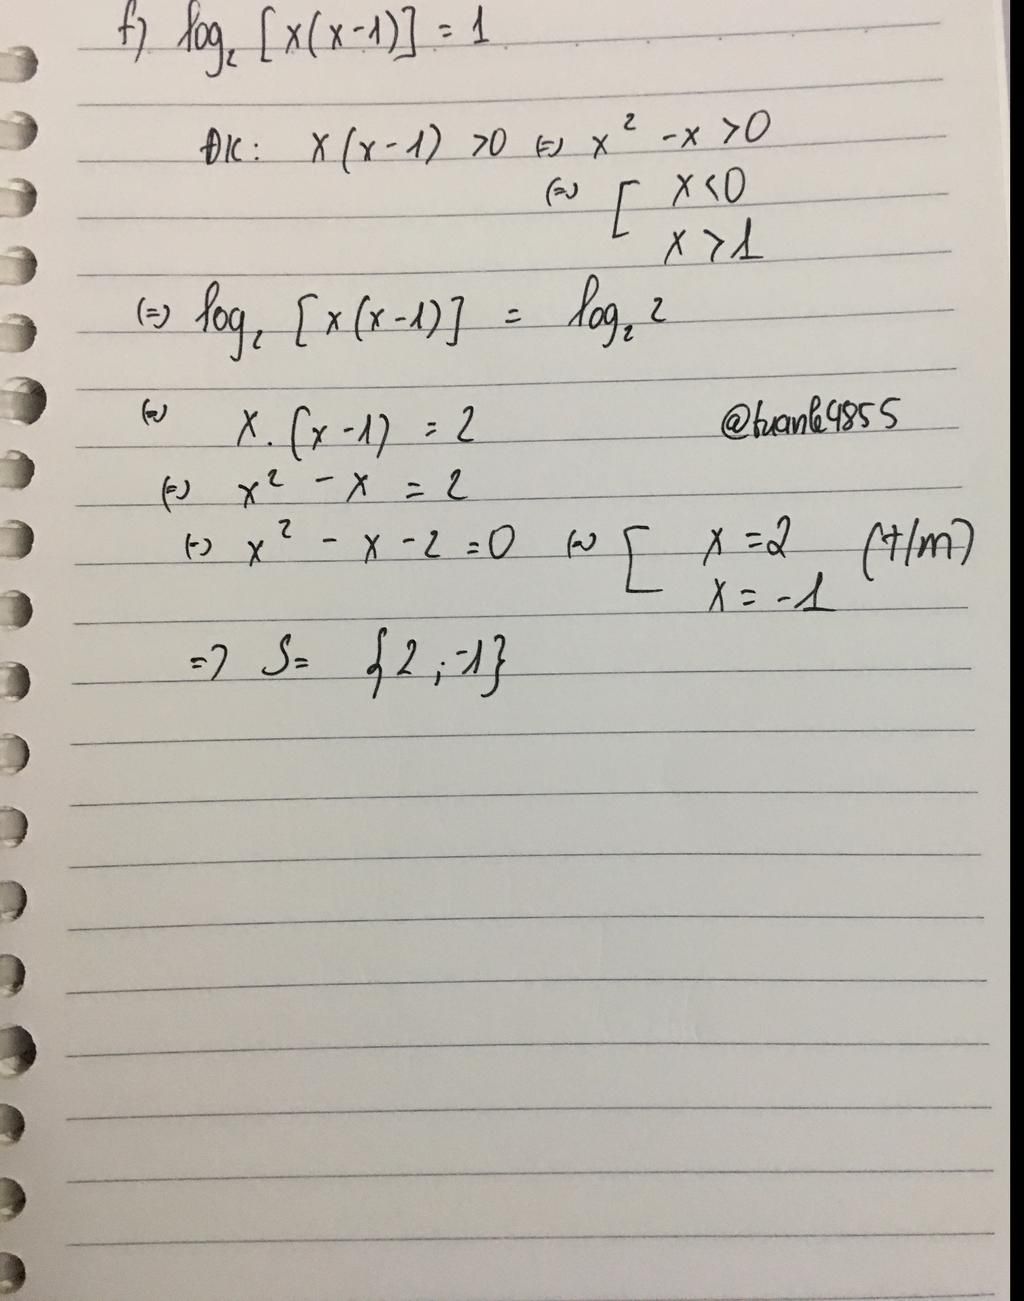 f) log₂ [x(x-1)] = 1
ĐK: x(x-1) >0 (=) x² -x >0
(=) [ x<0
x>1
(=) log₂ [x(x-1)] = log₂ 2
(=) x.(x-1) = 2
@tuanle4855
(=) x² - x = 2
(=) x² - x - 2 = 0 (=) [ x = 2 (t/m)
x = -1
=> S= {2 ; -1}